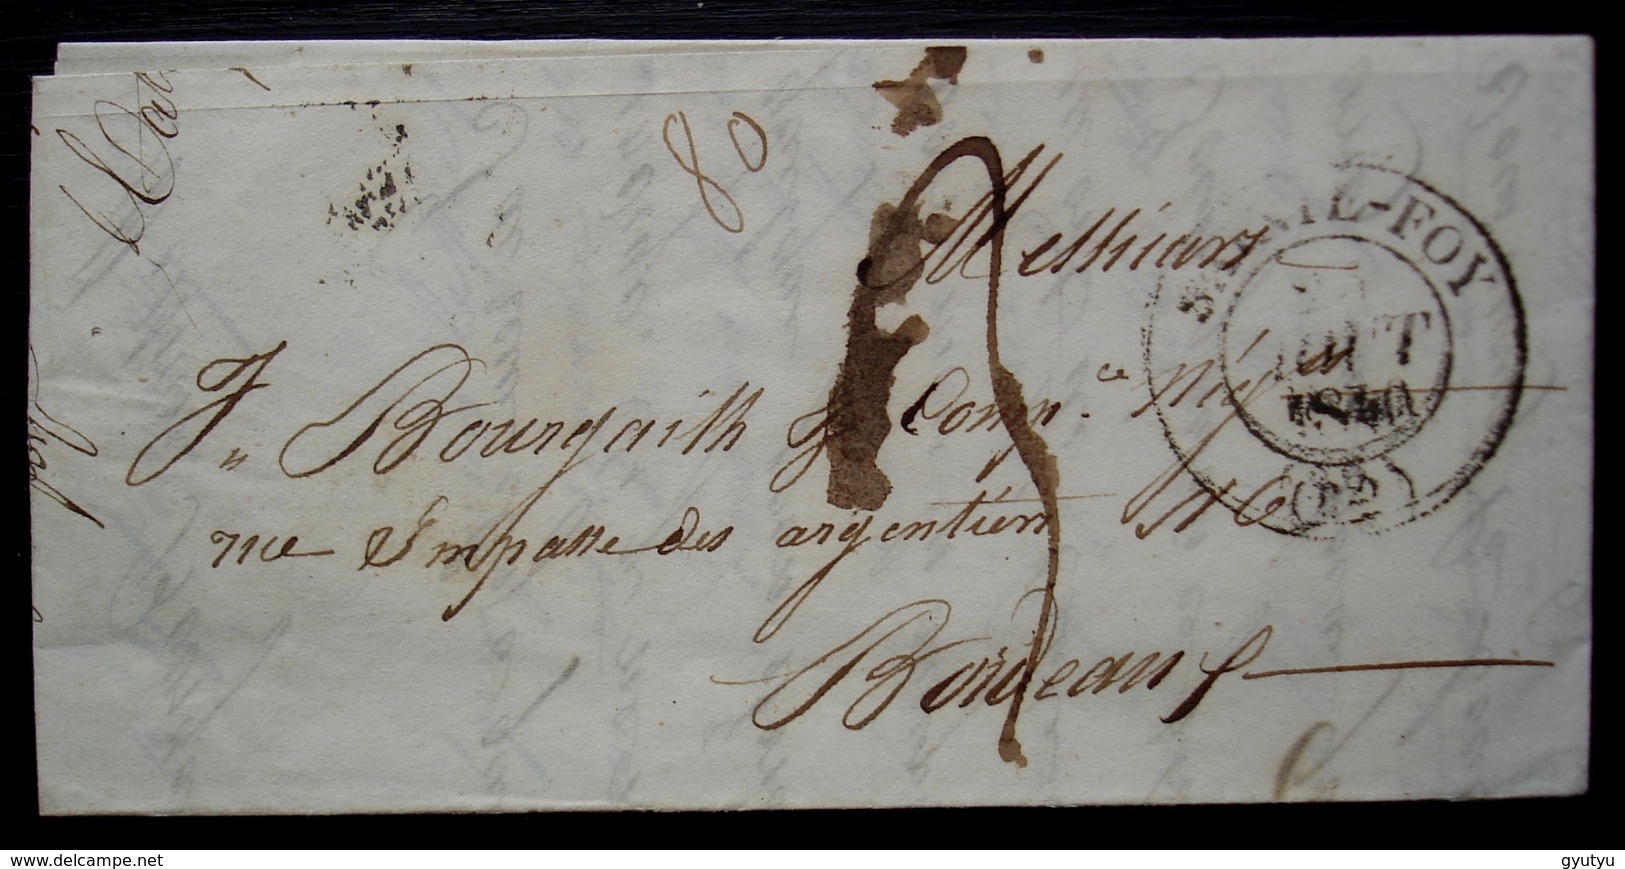 80
Messieurs
J" Bourgailh & Comp.ce Nég.
rue Impasse des argentiers N 6
Bordeaux
SAINTE-FOY
AOUT
1840
(32)
www.delcampe.net
gyutyu